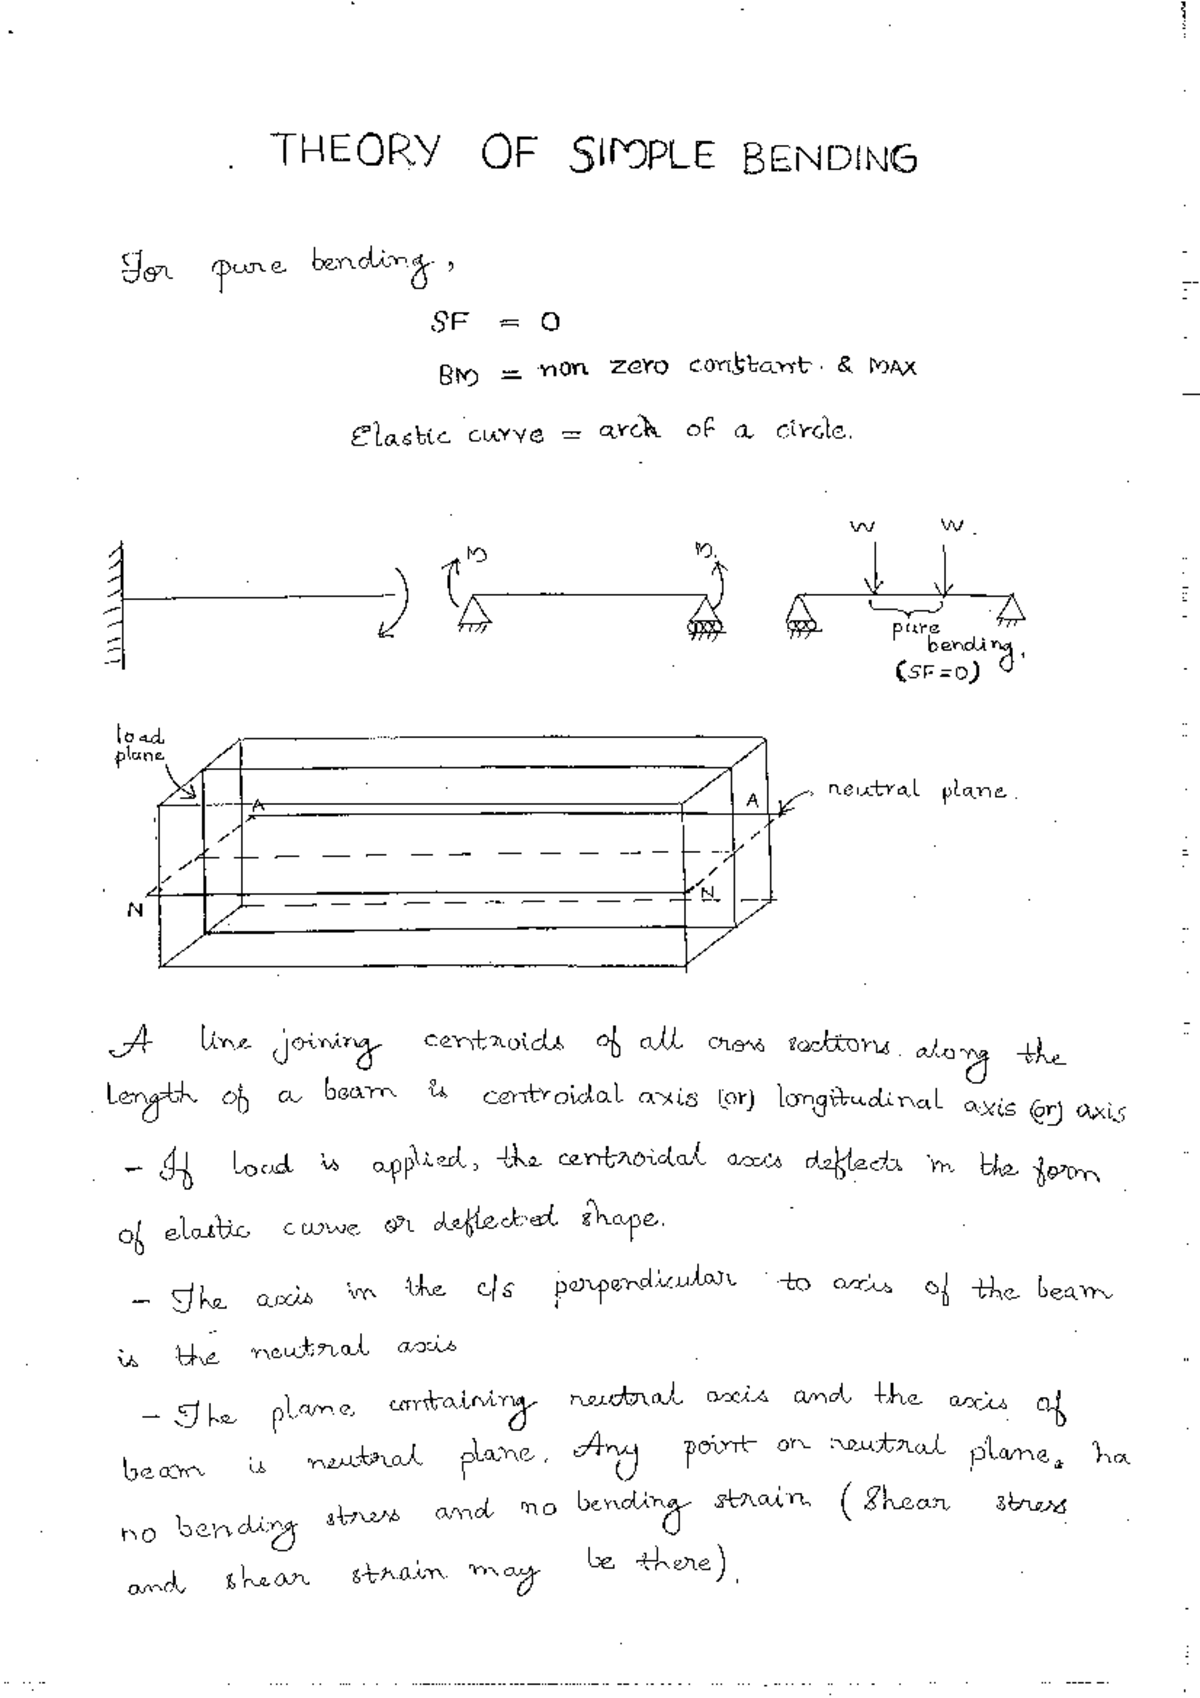 THEORY OF SIMPLE BENDING
For pure bending,
SF = 0
BM = non zero constant. & MAX
Elastic curve = arch of a circle.
M
M.
W
W.
pure
bending,
(SF=0)
load
plane
A
A
neutral plane.
N
N
A line joining centroids of all cross sections. along the
length of a beam is centroidal axis (or) longitudinal axis (or) axis
- If load is applied, the centroidal axis deflects in the form
of elastic curve or deflected shape.
- The axis in the c/s perpendicular to axis of the beam
is the neutral axis
- The plane containing neutral axis and the axis of
beam is neutral plane. Any point on neutral plane. ha
no bending stress and no bending strain (Shear stress
and shear strain may be there).